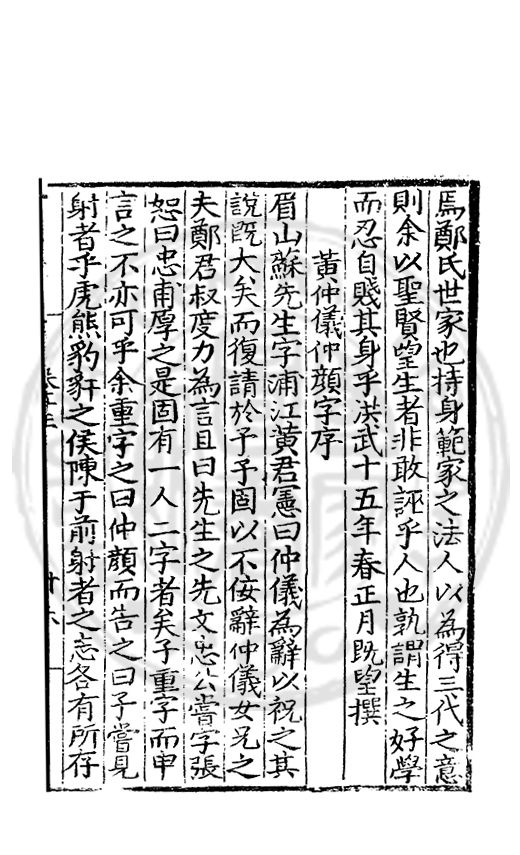 焉鄭氏世家也持身範家之法人以為得三代之意
則余以聖賢望生者非敢誣乎人也孰謂生之好學
而忍自賤其身乎洪武十五年春正月既望撰
黃仲儀仲顏字序
眉山蘇先生字浦江黃君憲曰仲儀為辭以祝之其
說既大矣而復請於予予固以不侫辭仲儀女兄之
夫鄭君叔度力為言且曰先生之先文忠公嘗字張
恕曰忠甫厚之是固有一人二字者矣子重字而申
言之不亦可乎余重字之曰仲顏而告之曰子嘗見
射者乎虎熊豹豻之侯陳于前射者之志各有所存